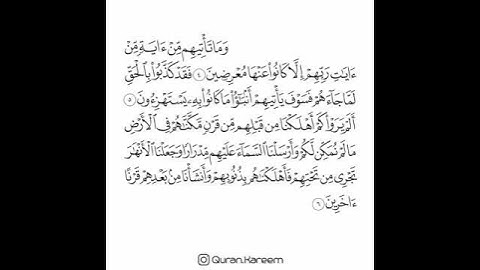 وَمَا تَأْتِيهِم مِّنْ ءَايَةٍ مِّنْ
ءَايَٰتِ رَبِّهِمْ إِلَّا كَانُوا۟ عَنْهَا مُعْرِضِينَ ٤ فَقَدْ كَذَّبُوا۟ بِٱلْحَقِّ
لَمَّا جَآءَهُمْ فَسَوْفَ يَأْتِيهِمْ أَنۢبَٰٓؤُا۟ مَا كَانُوا۟ بِهِۦ يَسْتَهْزِءُونَ ٥
أَلَمْ يَرَوْا۟ كَمْ أَهْلَكْنَا مِن قَبْلِهِم مِّن قَرْنٍ مَّكَّنَّٰهُمْ فِى ٱلْأَرْضِ
مَا لَمْ نُمَكِّن لَّكُمْ وَأَرْسَلْنَا ٱلسَّمَآءَ عَلَيْهِم مِّدْرَارًا وَجَعَلْنَا ٱلْأَنْهَٰرَ
تَجْرِى مِن تَحْتِهِمْ فَأَهْلَكْنَٰهُم بِذُنُوبِهِمْ وَأَنشَأْنَا مِنۢ بَعْدِهِمْ قَرْنًا
ءَاخَرِينَ ٦
Quran.Kareem